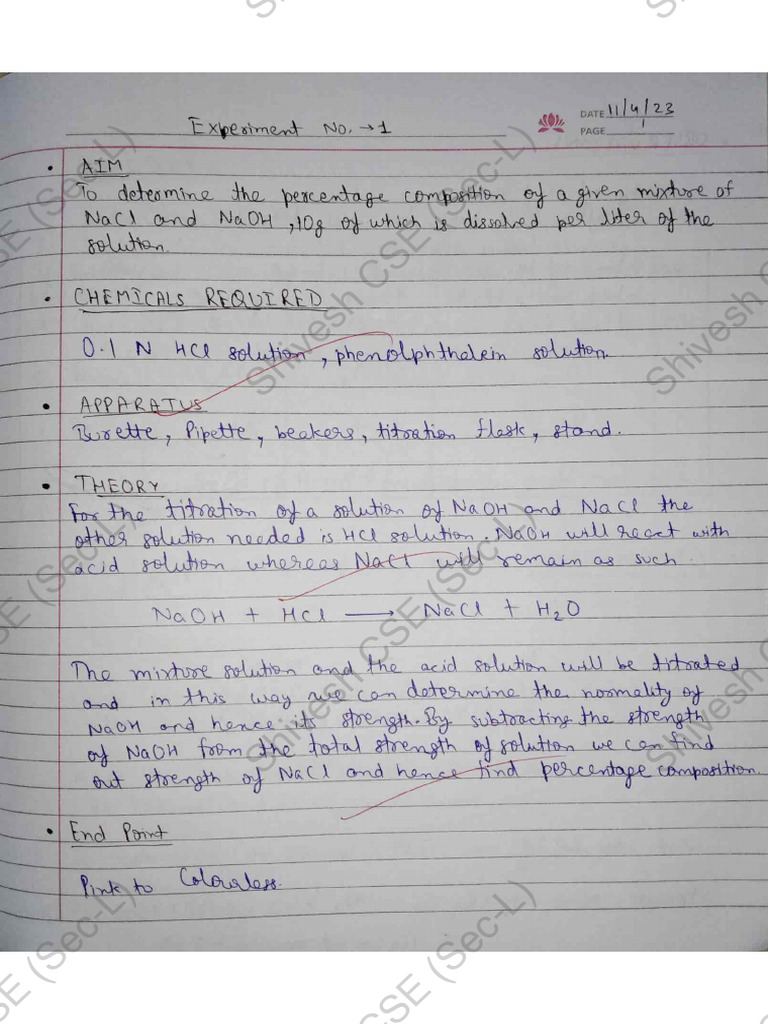 Experiment No. → 1
DATE 11/4/23
PAGE 1
• AIM
To determine the percentage composition of a given mixture of
NaCl and NaOH, 10g of which is dissolved per liter of the
solution.
• CHEMICALS REQUIRED
0.1 N HCl solution, phenolphthalein solution.
• APPARATUS
Burette, Pipette, beakers, titration flask, stand.
• THEORY
For the titration of a solution of NaOH and NaCl the
other solution needed is HCl solution. NaOH will react with
acid solution whereas NaCl will remain as such.
NaOH + HCl → NaCl + H₂O
The mixture solution and the acid solution will be titrated
and in this way we can determine the normality of
NaOH and hence its strength. By subtracting the strength
of NaOH from the total strength of solution we can find
out strength of NaCl and hence find percentage composition.
• End Point
Pink to Colourless.
Shivesh CSE (Sec-L)